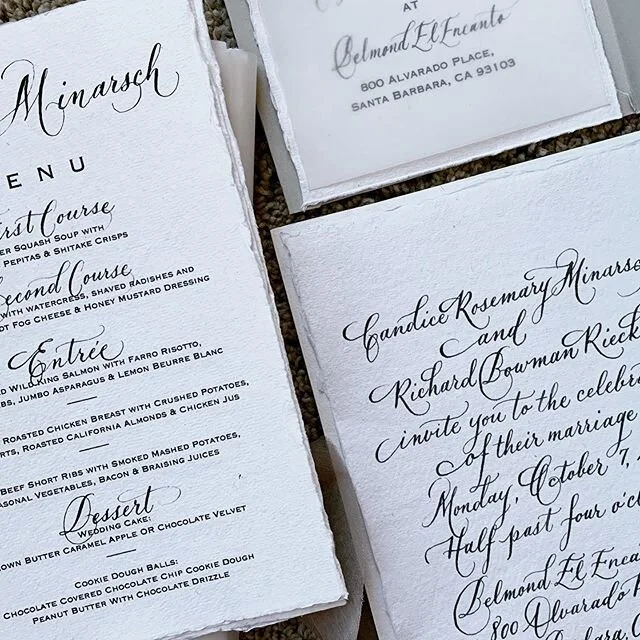 Minarsch
ENU
First Course
er Squash Soup with
Pepitas & Shitake Crisps
Second Course
with watercress, shaved radishes and
ot Fog Cheese & Honey Mustard Dressing
Entrée
ed Wild King Salmon with Farro Risotto,
bs, Jumbo Asparagus & Lemon Beurre Blanc
Roasted Chicken Breast with Crushed Potatoes,
rts, Roasted California Almonds & Chicken Jus
Beef Short Ribs with Smoked Mashed Potatoes,
easonal Vegetables, Bacon & Braising Juices
Dessert
Wedding Cake:
own Butter Caramel Apple or Chocolate Velvet
Cookie Dough Balls:
Chocolate Covered Chocolate Chip Cookie Dough
Peanut Butter With Chocolate Drizzle
AT
Belmond El Encanto
800 Alvarado Place,
Santa Barbara, CA 93103
Candice Rosemary Minarsc
and
Richard Bowman Rieck
invite you to the celebr
of their marriage
Monday, October 7,
Half past four o'c
Belmond El Enca
800 Alvarado P